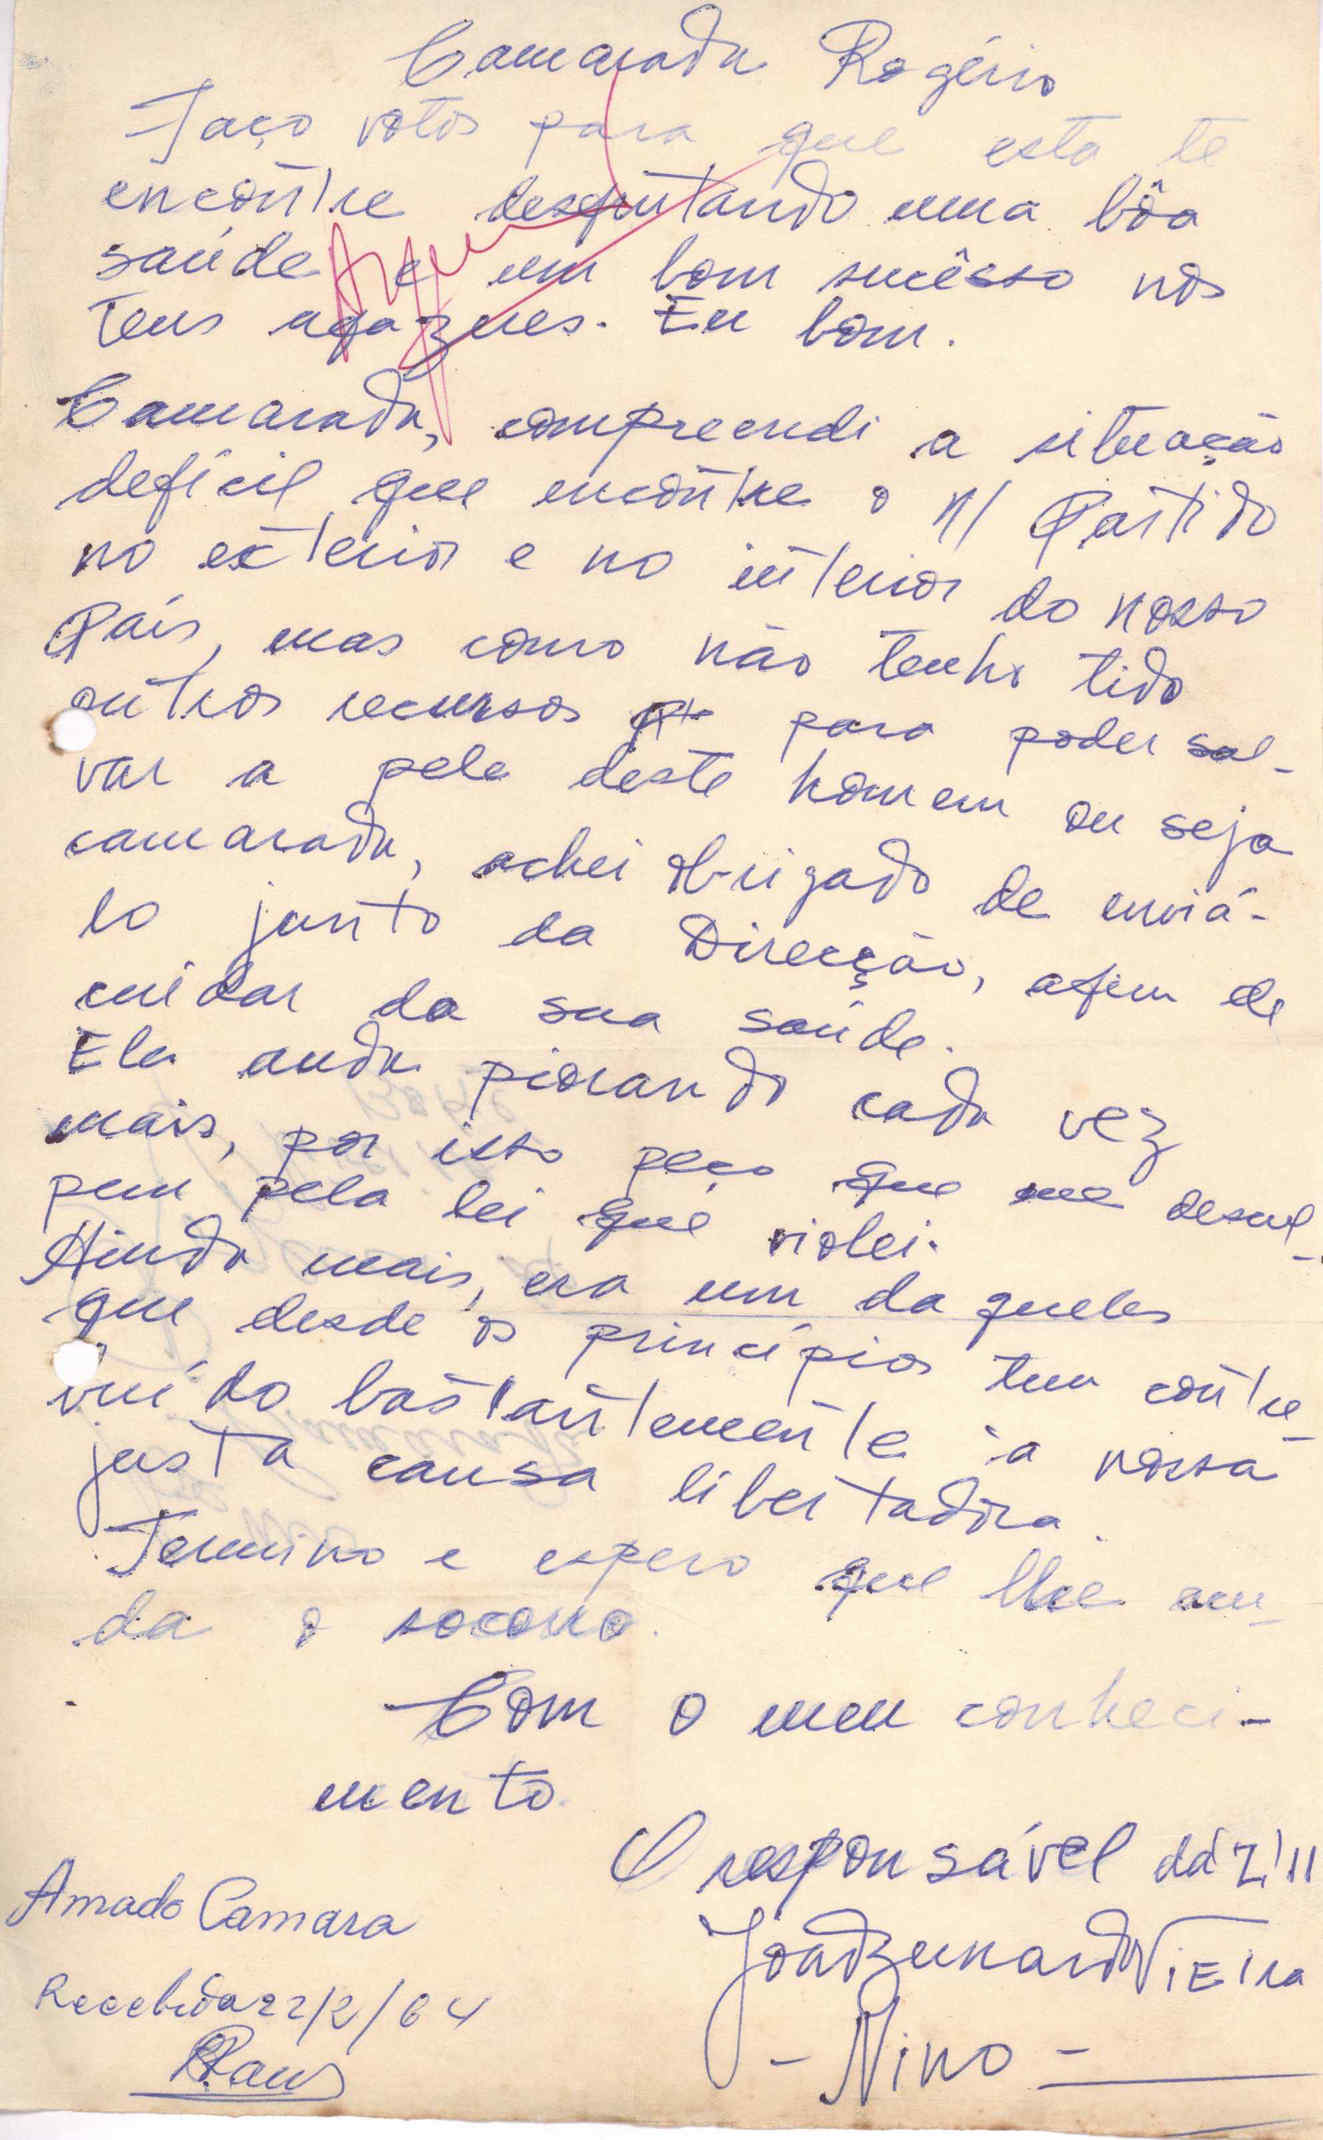 Camarada Rogério
Faço votos para que esta te
encontre desfrutando uma bôa
saúde e um bom sucêsso nos
teus afazeres. Eu bom.
Camarada, compreendi a situação
defícil que encontre o n/ Partido
no exterior e no interior do nosso
País, mas como não tenho tido
outros recursos para poder sal-
var a pele deste homem ou seja
camarada, achei obrigado de enviá-
lo junto da Direcção, afim de
cuidar da sua saúde.
Ele anda piorando cada vez
mais, por isso peço que me descul-
pem pela lei que violei.
Ainda mais, era um da queles
que desde os princípios tem contri-
buído bastantemente à nossa
justa causa libertadora.
Termino e espero que lhe aen-
da o socorro.
Com o meu conheci-
mento.
O responsável da Z/11
João Bernardo Vieira
- Nino -
Amado Camara
Recebida 22/2/64